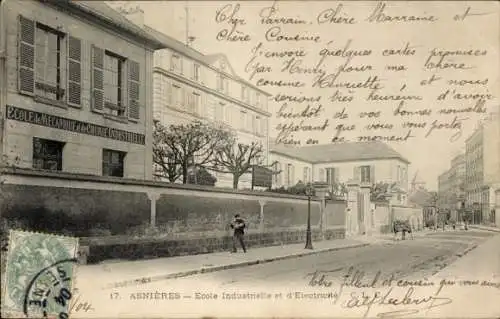 Cher Parrain, Chère Marraine et
Chère Cousine,
J'envoie quelques cartes promises
par Henry pour ma chère
cousine Henriette, et nous
serions très heureux d'avoir
bientôt de vos bonnes nouvelles
espérant que vous vous portez
en ce moment
ECOLE DE MÉCANIQUE & DE CHIMIE INDUSTRIELLES
Votre filleul et cousin qui
vous embrasse
Leclerc
17. ASNIÈRES — Ecole Industrielle et d'Electricité C. L. C.
04